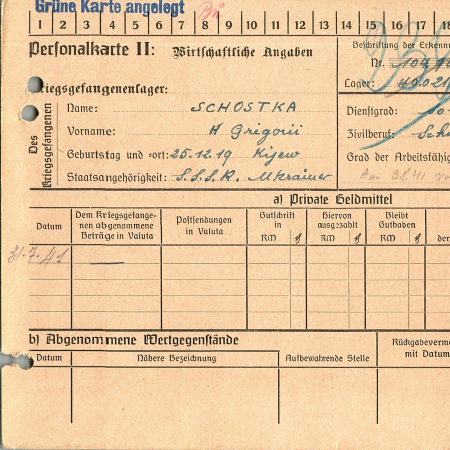 Grüne Karte angelegt
1 2 3 4 5 6 7 8 9 10 11 12 13 14 15 16 17 18
Personalkarte II: Wirtschaftliche Angaben
Beschriftung der Erkenn
Nr.
Kriegsgefangenenlager:
Lager:
Des Kriegsgefangenen
Name: SCHOSTKA
Vorname: Grigorii
Geburtstag und -ort: 25.12.19 Kijew
Staatsangehörigkeit: S.S.S.R. Ukrainer
Dienstgrad: So
Zivilberuf: Sch
Grad der Arbeitsfähig
a) Private Geldmittel
Datum
Dem Kriegsgefange-
nen abgenommene
Beträge in Valuta
Postsendungen
in Valuta
Gutschrift
in
RM
Hiervon
ausgezahlt
RM
Bleibt
Guthaben
RM
der
31.7.41 —
b) Abgenommene Wertgegenstände
Datum
Nähere Bezeichnung
Aufbewahrende Stelle
Rückgabeverme
mit Datum